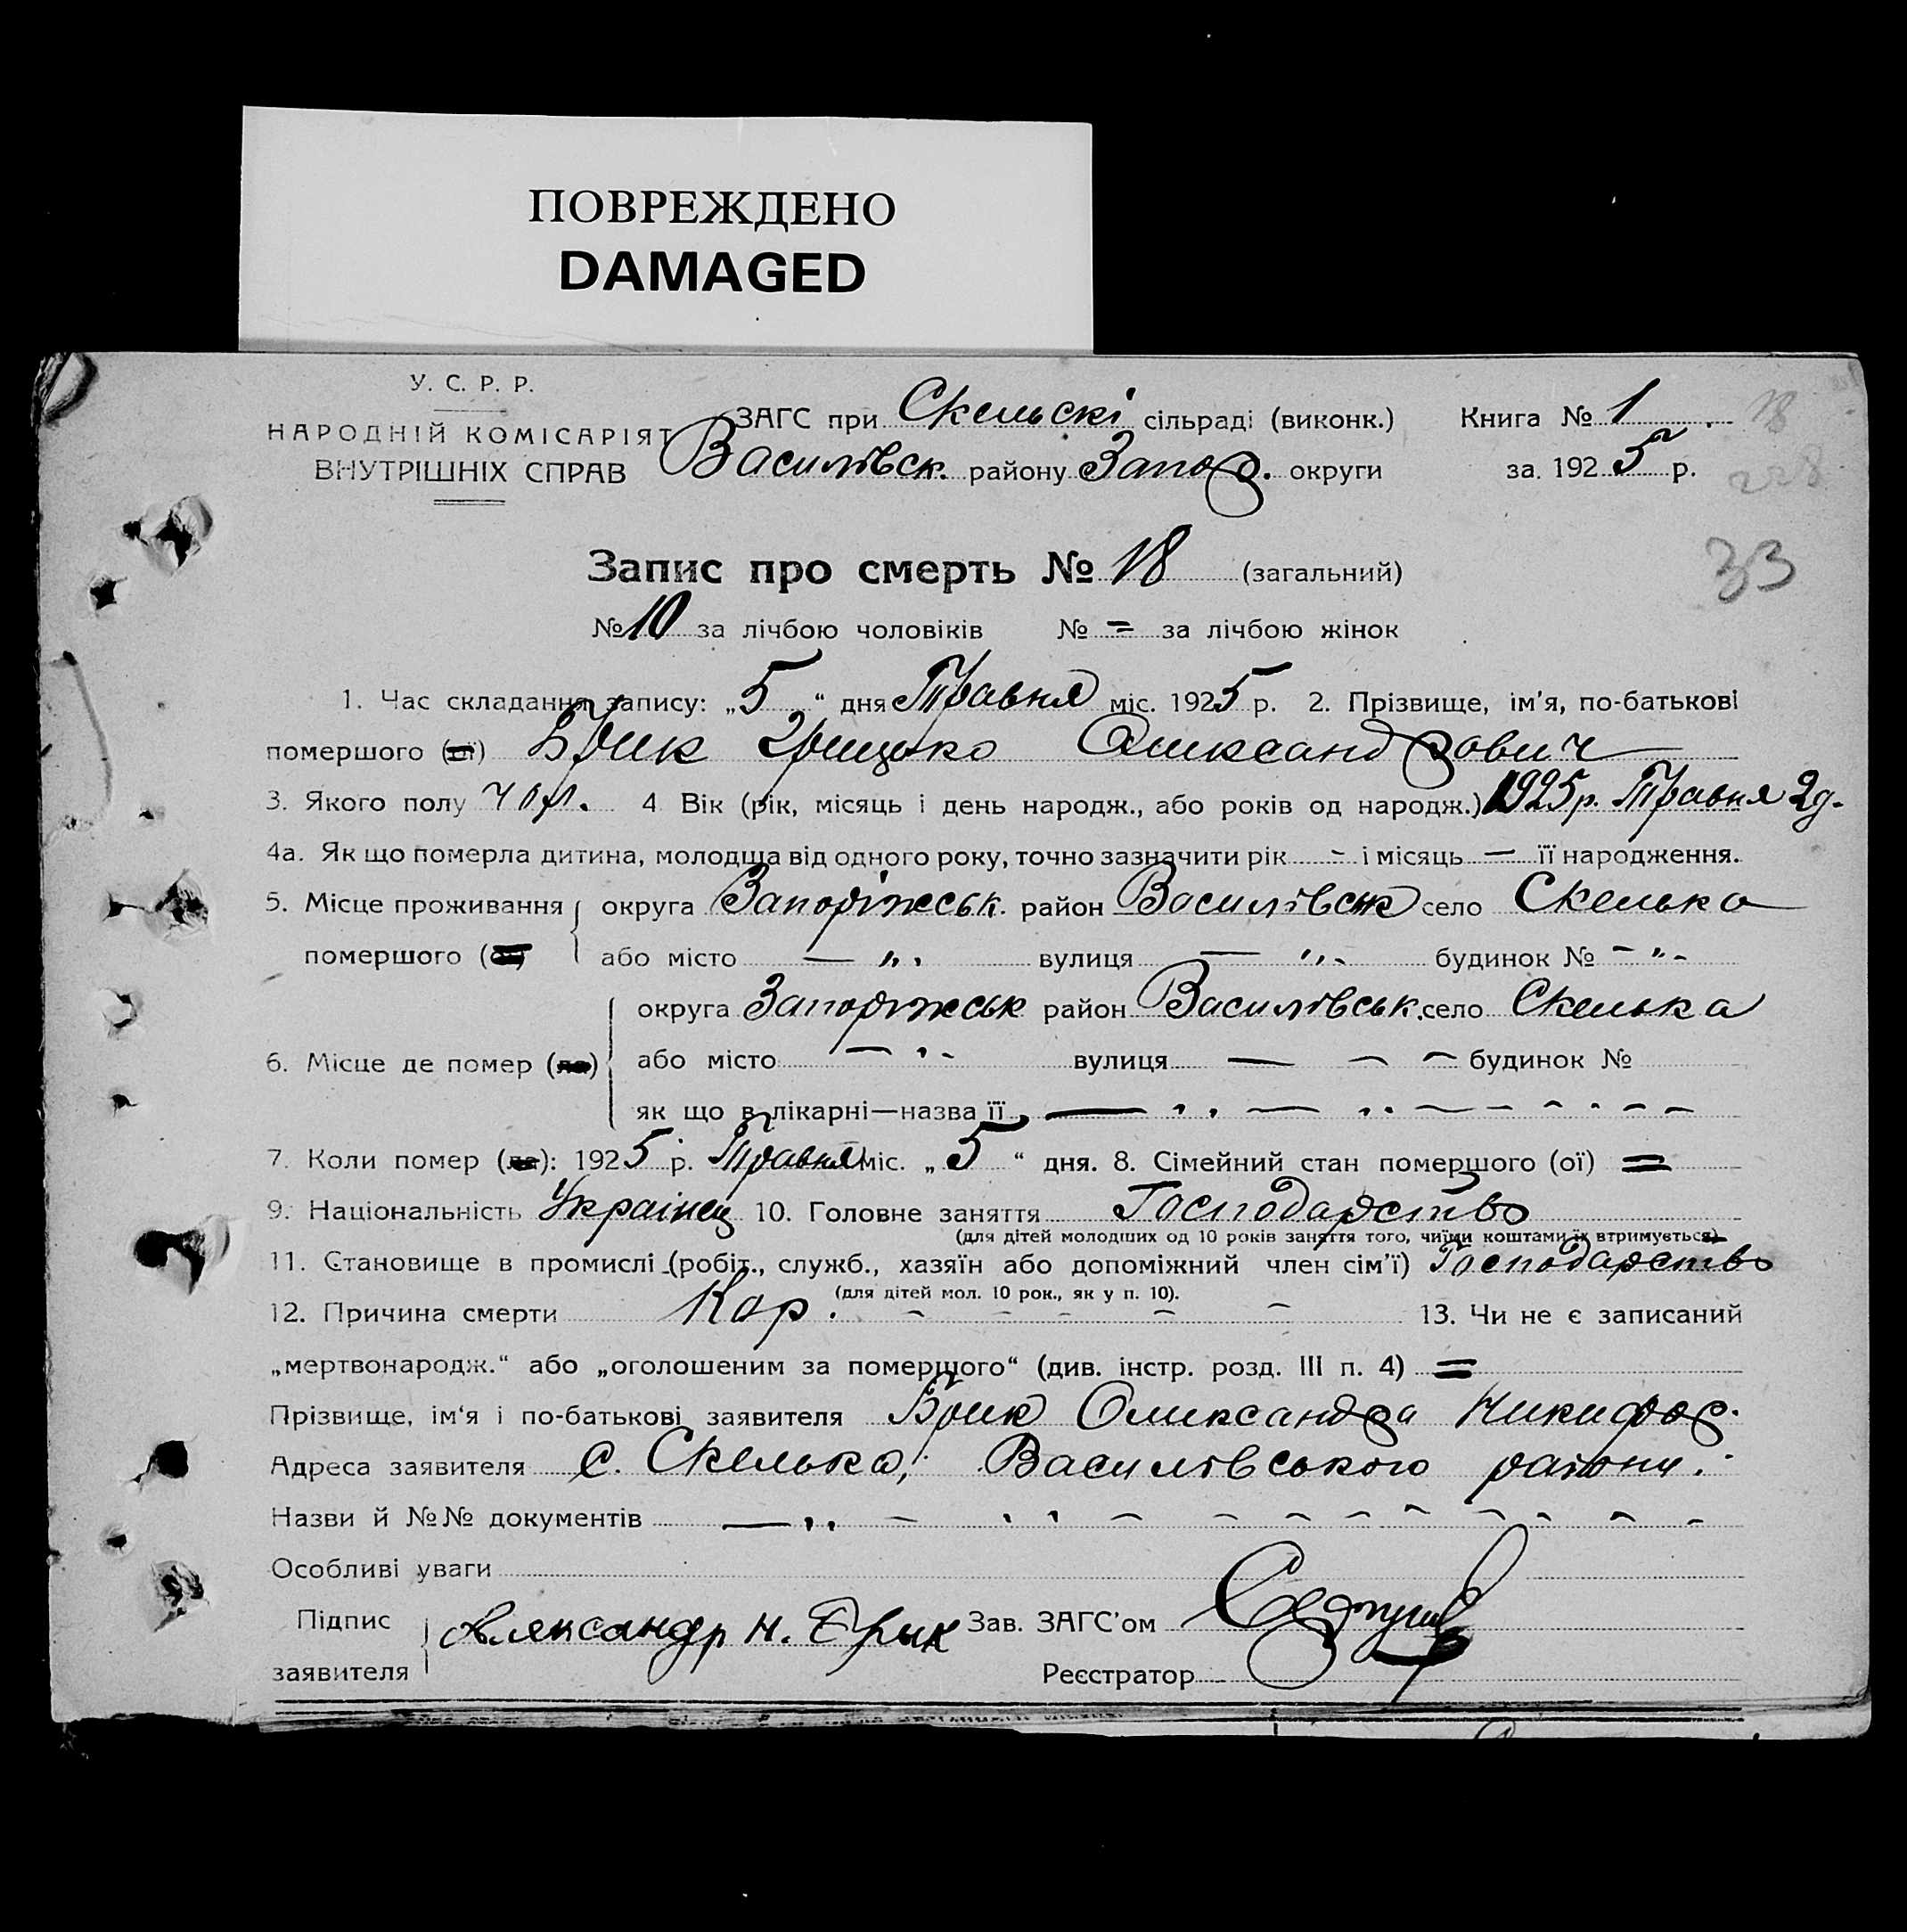 ПОВРЕЖДЕНО
DAMAGED
У. С. Р. Р.
НАРОДНІЙ КОМІСАРІЯТ
ВНУТРІШНІХ СПРАВ
ЗАГС при Скельскі сільраді (виконк.) Книга № 1 18
Василівск. району Запор. округи за 1925 р. 228
Запис про смерть № 18 (загальний) 33
№ 10 за лічбою чоловіків № = за лічбою жінок
1. Час складання запису: „5“ дня Травня міс. 1925 р. 2. Прізвище, ім'я, по-батькові
помершого (ої) Брик Грицько Олександрович
3. Якого полу чол. 4 Вік (рік, місяць і день народж., або років од народж.) 1925 р. Травня 2 д.
4а. Як що померла дитина, молодша від одного року, точно зазначити рік - і місяць — її народження.
5. Місце проживання округа Запоріжськ. район Василівськ село Скелька
помершого (ої) або місто — „ . вулиця — „ - будинок № - „ -
округа Запоріжськ район Василівськ. село Скелька
6. Місце де помер (ла) або місто — вулиця — — — будинок №
як що в лікарні—назва її —
7. Коли помер (ла): 1925 р. Травня міс. „5“ дня. 8. Сімейний стан помершого (ої) =
9. Національність Українец 10. Головне заняття Господарство
(для дітей молодших од 10 років заняття того, чиїми коштами їх втримується)
11. Становище в промислі (робіт., служб., хазяїн або допоміжний член сім'ї) Господарство
(для дітей мол. 10 рок., як у п. 10).
12. Причина смерти Кор. - - - - - 13. Чи не є записаний
„мертвонародж.“ або „оголошеним за помершого“ (див. інстр. розд. III п. 4) =
Прізвище, ім'я і по-батькові заявителя Брик Олександра Никифор.
Адреса заявителя с. Скелька, Василівського району.
Назви й №№ документів —
Особливі уваги
Підпис
заявителя Александр Н. Брык Зав. ЗАГС'ом
Реєстратор